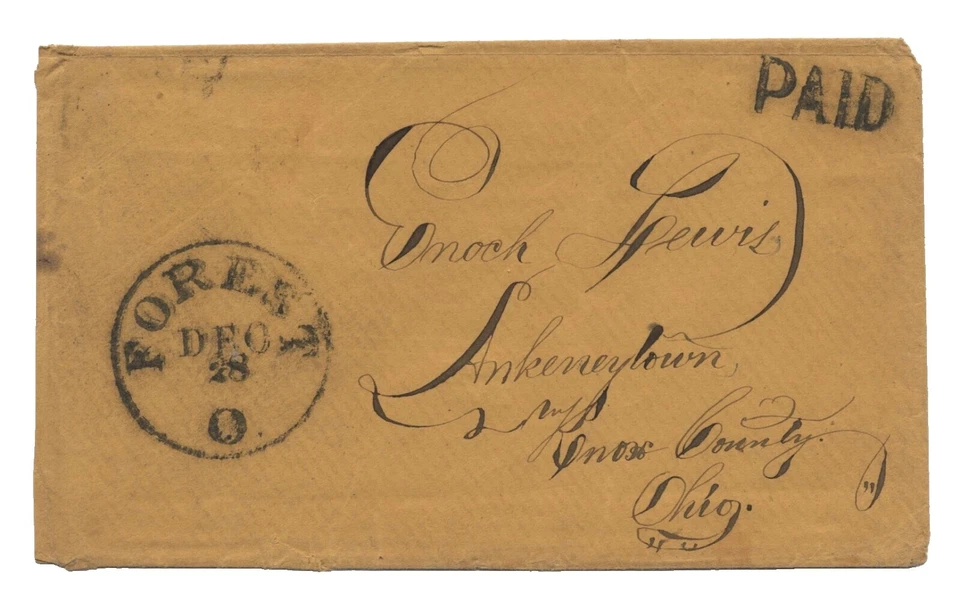 PAID
Enoch Lewis
Ankeneytown,
Knox County.
Ohio.
FOREST
DEC
28
O.